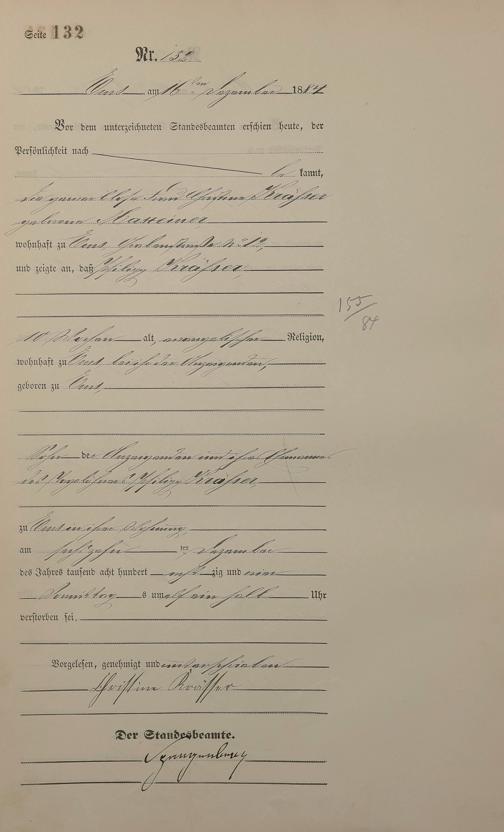 Seite 132
Nr. 152
Ems am 16ten Dezember 1884
Vor dem unterzeichneten Standesbeamten erschien heute, der
Persönlichkeit nach
be kannt,
die gewerblose Frau Christine Kräßer
geborene Maxeiner
wohnhaft zu Ems, Grabenstraße No 12,
und zeigte an, daß Philipp Kräßer,
10 Wochen alt, evangelischer Religion,
wohnhaft zu Ems bei der Anzeigenden,
geboren zu Ems,
Sohn der Anzeigenden und ihres Ehemannes
des Philipp Kräßer,
zu Ems in ihrer Wohnung
am sechszehn ten Dezember
des Jahres tausend acht hundert acht zig und vier
s um elf ein halb Uhr
verstorben sei.
Vorgelesen, genehmigt und unterschrieben
Christine Krässer
Der Standesbeamte.
Spangenberg
155/84